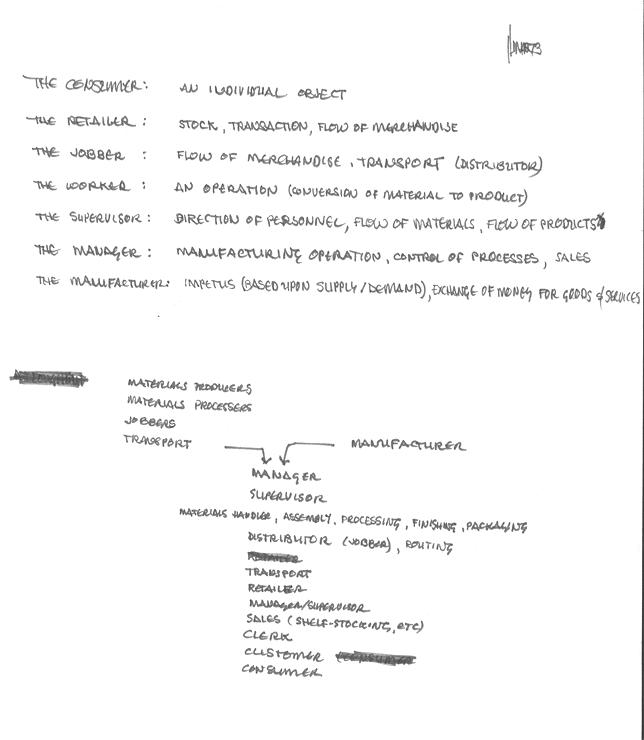 THE CONSUMER: AN INDIVIDUAL OBJECT
THE RETAILER: STOCK, TRANSACTION, FLOW OF MERCHANDISE
THE JOBBER: FLOW OF MERCHANDISE, TRANSPORT (DISTRIBUTOR)
THE WORKER: AN OPERATION (CONVERSION OF MATERIAL TO PRODUCT)
THE SUPERVISOR: DIRECTION OF PERSONNEL, FLOW OF MATERIALS, FLOW OF PRODUCTS
THE MANAGER: MANUFACTURING OPERATION, CONTROL OF PROCESSES, SALES
THE MANUFACTURER: IMPETUS (BASED UPON SUPPLY/DEMAND), EXCHANGE OF MONEY FOR GOODS & SERVICES
MATERIALS PRODUCERS
MATERIALS PROCESSERS
JOBBERS
TRANSPORT MANUFACTURER
MANAGER
SUPERVISOR
MATERIALS HANDLER, ASSEMBLY, PROCESSING, FINISHING, PACKAGING
DISTRIBUTOR (JOBBER), ROUTING
TRANSPORT
RETAILER
MANAGER/SUPERVISOR
SALES (SHELF-STOCKING, ETC)
CLERK
CUSTOMER
CONSUMER